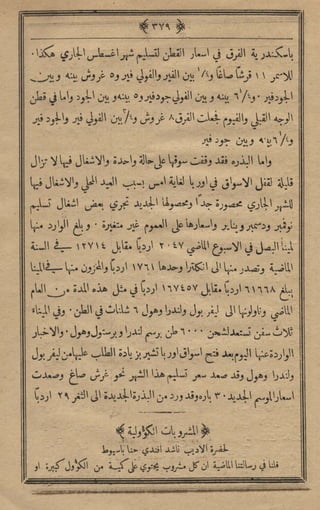 ﴿ ٣٧٩ ﴾
باسكندرية الفرق في اسعار القطن لتسليم شهر اغسطس الجاري هكذا.
للاسمر ١١ قرشًا صاغًا و ١/٤ بين الفير والفولي فير و٥ غروش بينه وبين
الجود فير. و ١/٤ ٦ بينه وبين الفولي جود فير و٥ بينه وبين الجود واما في قطن
الوجه القبلي والفيوم فجعلت الفرق ٨ غروش و ١/٤ بين الفولي فير والجود فير
و ١/٤ ٦ بينه وبين جود فير
واما البذره فقد وقفت سوقها على حالة واحدة والاشغال فيها لا تزال
قليلة لقفل الاسواق في اوربا لغاية امس بسبب العيد المحلي والاشغال فيها
للشهر الجاري محصورة جدًا ومحصولها الجديد تجري بعض اشغال تسليم
نوفمبر ودسمبر ويناير واسعارها على العموم غير متغيرة. وبلغ الوارد منها
لمينا البصل في الاسبوع الماضي ٢٠٤٧ اردبًا مقابل ١٢٧١٤ في السنة
الماضية وتصدر منها الى انكلترا وحدها ١٧٦١ اردبًا والمخزون منها في المينا
يبلغ ٦١٦٦٨ اردبًا مقابل ١٦٧٤٥٧ اردبًا في مثل هذه المدة من العام
الماضي وناولونها الى ليفربول ولندرا وهول ٦ شلنات في الطن. وفي الميناء
ثلاث سفن تستعد لشحن ٦٠٠٠ طن برسم لندرا وبرستول وهول. والاخبار
الواردة عنها اليوم بعد فتح اسواق اوربا تشير بزيادة الطلب عليها من ليفربول
ولندرا وهول وقد صعد سعر تسليم هذا الشهر نحو غرش صاغ وصعدت
اسعار الموسم الجديد ٣٠ باره وقد ورد من البذرة الجديدة الى الثغر ٢٩ اردبًا
﴿ المشروبات الكؤلية ﴾
لحضرة الاديب ناشد افندي حنا باسيوط
قلنا في رسالتنا الماضية ان كل مشروب يحتوي على كمية من الكؤول كبيرة او